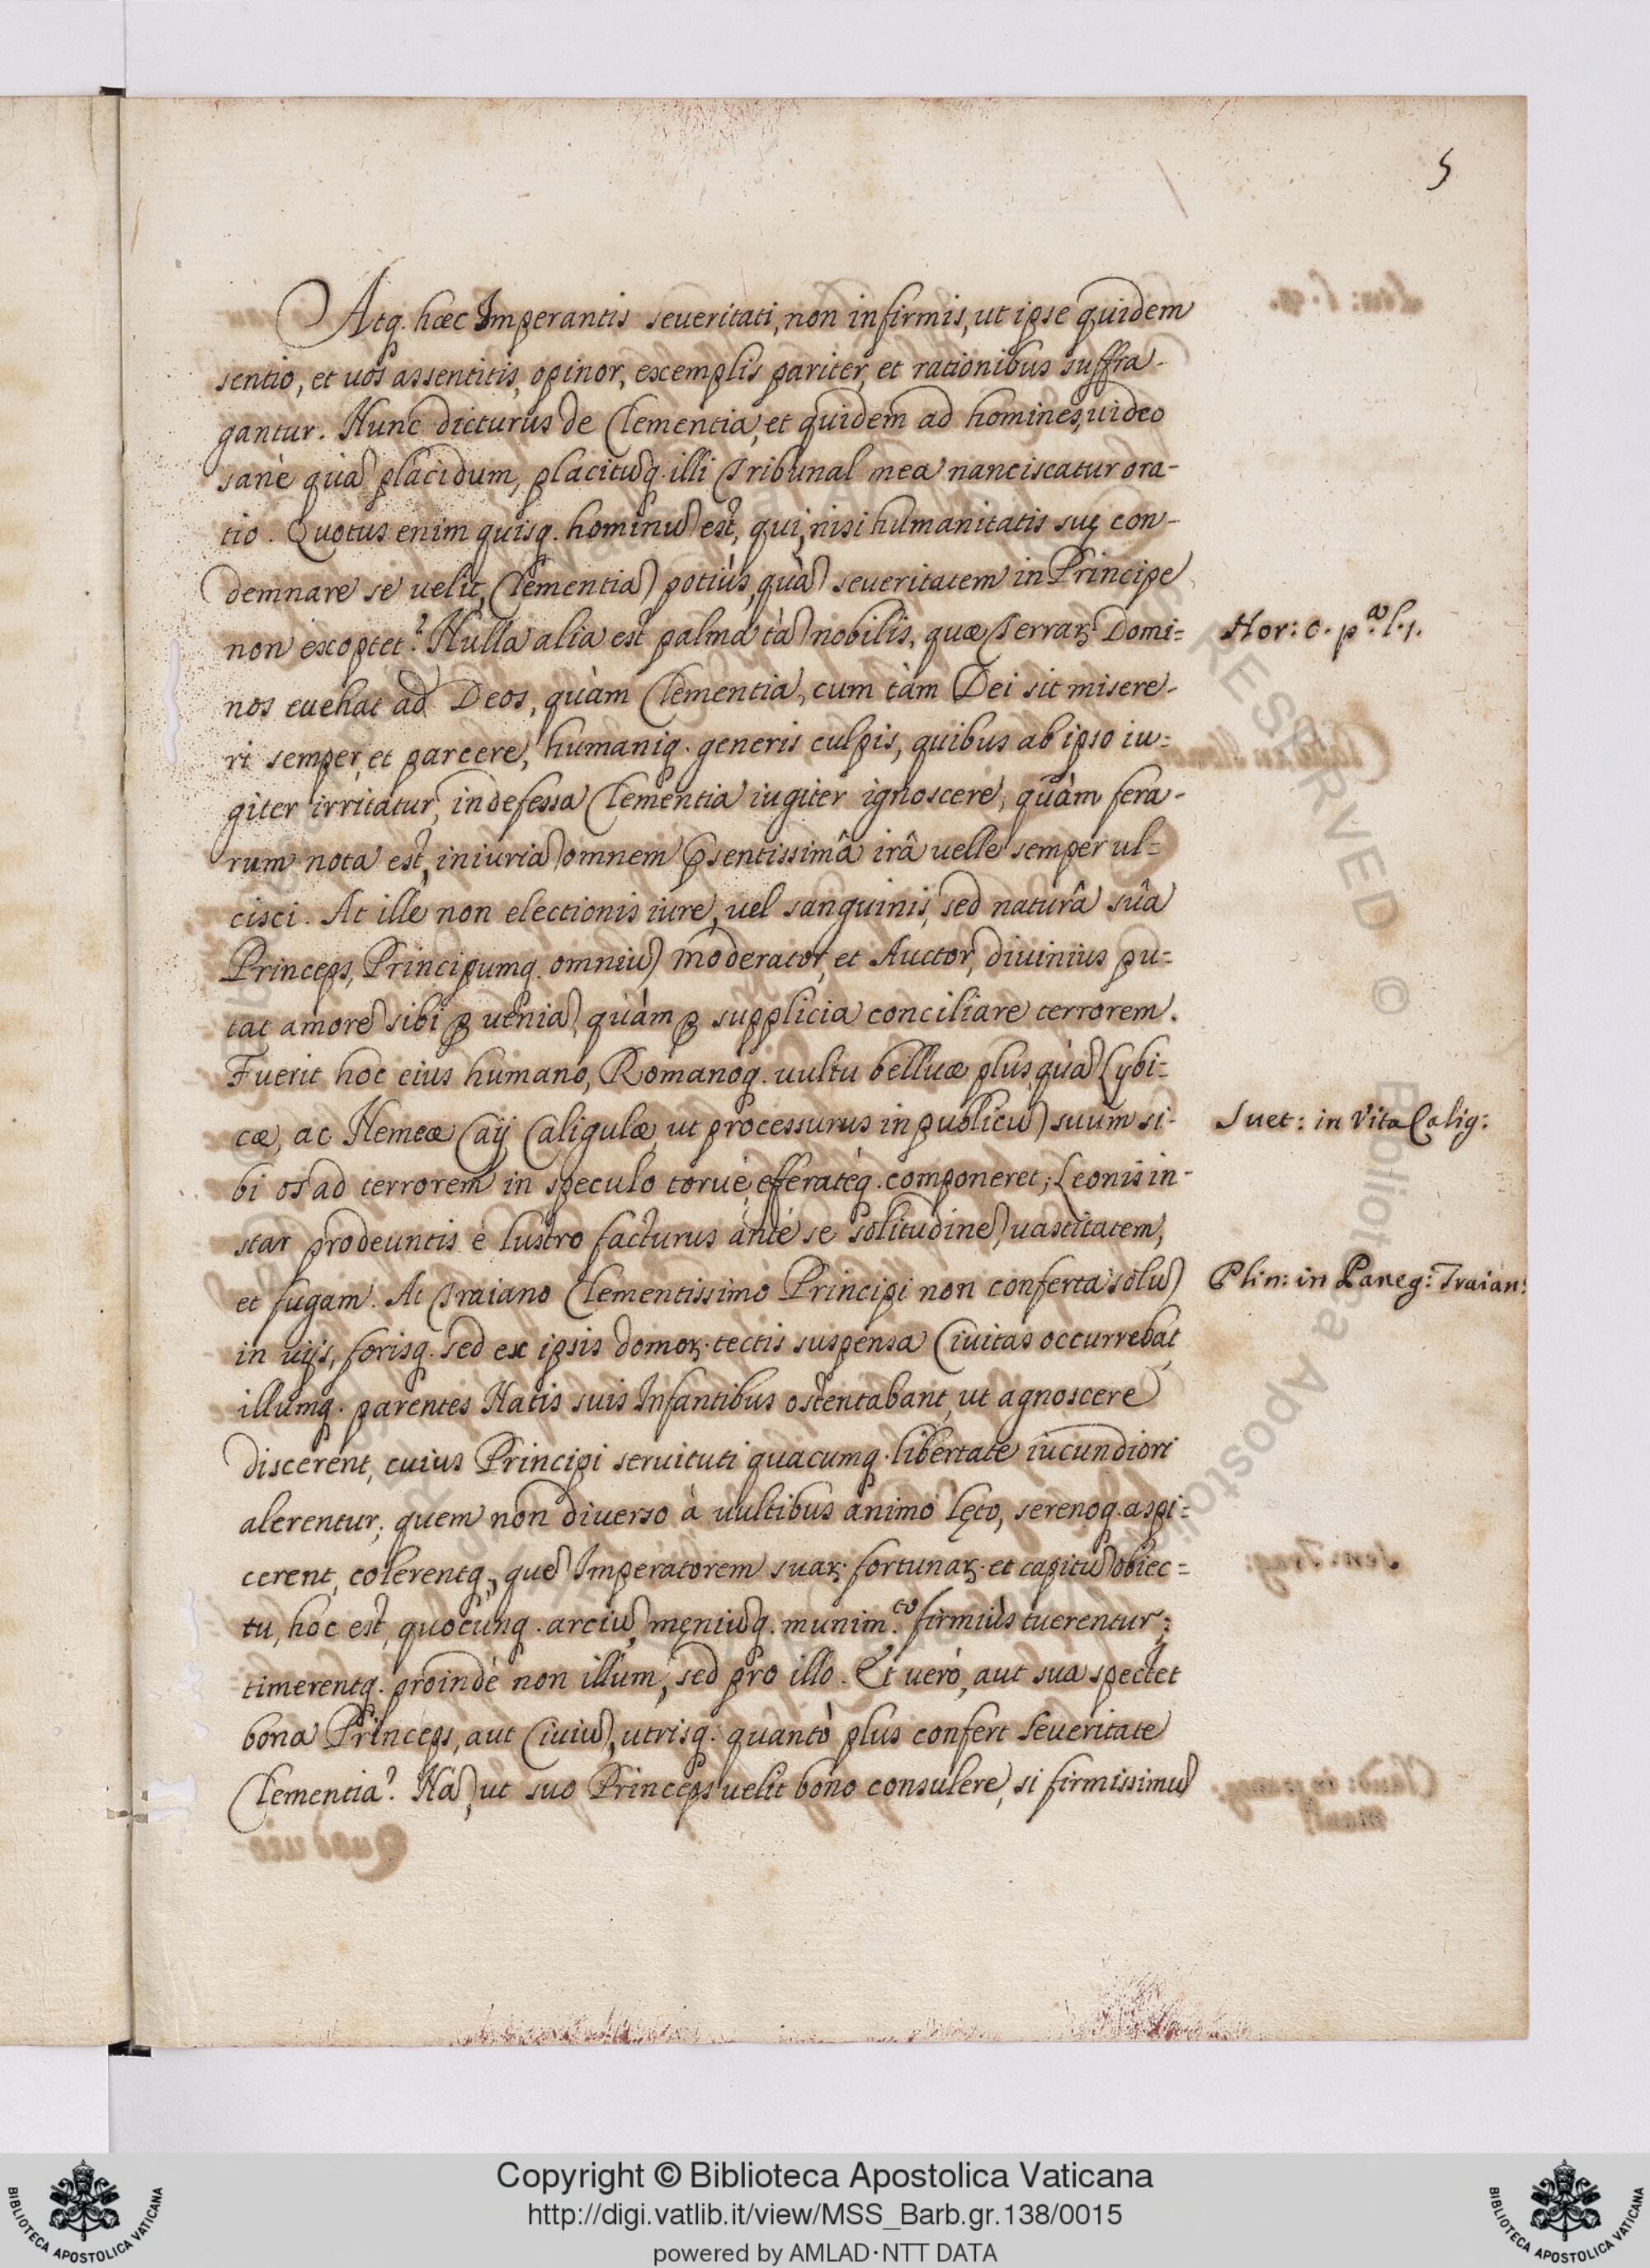 5
Atq. hæc Imperantis seueritati, non infirmis, ut ipse quidem
sentio, et uos assentitis, opinor, exemplis pariter, et rationibus suffra-
gantur. Nunc dicturus de Clementia, et quidem ad homines, uideo
sanè quã placidum, placitũq. illi Tribunal mea nanciscatur ora-
tio. Quotus enim quisq. hominũ est, qui, nisi humanitatis suę con-
demnare se uelit, Clementiã potiùs, quã seueritatem in Principe
non exoptet? Nulla alia est palma tã nobilis, quæ Terrarꝫ Domi=
Hor: c. pª. l. 1.
nos euehat ad Deos, quàm Clementia, cum tàm Dei sit misere-
ri semper, et parcere, humaniq. generis culpis, quibus ab ipso iu=
giter irritatur, indefessa Clementia iugiter ignoscere, quàm fera-
rum nota est, iniuriã omnem p̃sentissimâ irâ uelle semper ul=
cisci. At ille non electionis iure, uel sanguinis, sed naturâ suâ
Princeps, Principumq. omniũ moderator, et Auctor, diuinius pu=
tat amorẽ sibi ꝑ ueniã, quàm ꝑ supplicia conciliare terrorem.
Fuerit hoc eius humano, Romanoq. uultu belluæ plus, quã Lybi=
cæ, ac Nemeæ Caij Caligulæ, ut processurus in publicũ suum si-
Suet: in Vita Calig:
bi os ad terrorem in speculo toruè, efferatèq. componeret, Leonis in-
star prodeuntis è lustro facturus ante se solitudinẽ, uastitatem,
et fugam. At Traiano Clementissimo Principi non conferta solũ
Plin: in Paneg: Traian:
in uijs, forisq. sed ex ipsis domorꝫ. tectis suspensa Ciuitas occurrebat,
illumq. parentes Natis suis Infantibus ostentabant, ut agnoscere
discerent, cuius Principi seruituti quacumq. libertate iucundiori
alerentur; quem non diuerso à uultibus animo lęto, serenoq. aspi=
cerent, colerentq., quẽ Imperatorem suarꝫ. fortunarꝫ. et capitũ obiec=
tu, hoc est, quocunq. arciũ, męniũq. munim.to firmiùs tuerentur;
timerentq. proindè non illum, sed pro illo. Et uerò, aut sua spectet
bona Princeps, aut Ciuiũ, utrisq. quantò plus confert Seueritate
Clementia? Nã, ut suo Princeps uelit bono consulere, si firmissimũ
Copyright © Biblioteca Apostolica Vaticana
http://digi.vatlib.it/view/MSS_Barb.gr.138/0015
powered by AMLAD·NTT DATA
BIBLIOTECA APOSTOLICA VATICANA
BIBLIOTECA APOSTOLICA VATICANA